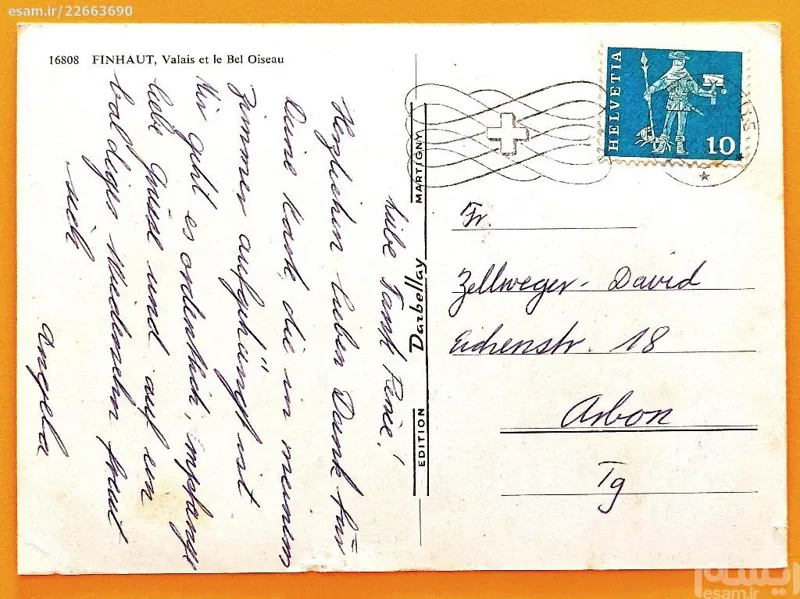 esam.ir/22663690
16808 FINHAUT, Valais et le Bel Oiseau
HELVETIA
10
Liebe Tante Renée!
Herzlichen lieben Dank für
Deine Karte, die in meinem
Zimmer aufgehängt ist
Mir geht es ordentlich, empfange
liebe Grüsse und auf ein
baldiges Wiedersehn freut
sich
Angela
EDITION Darbellay MARTIGNY
Fr.
Zellweger-David
Eichenstr. 18
Arbon
Tg
ایسام
esam.ir